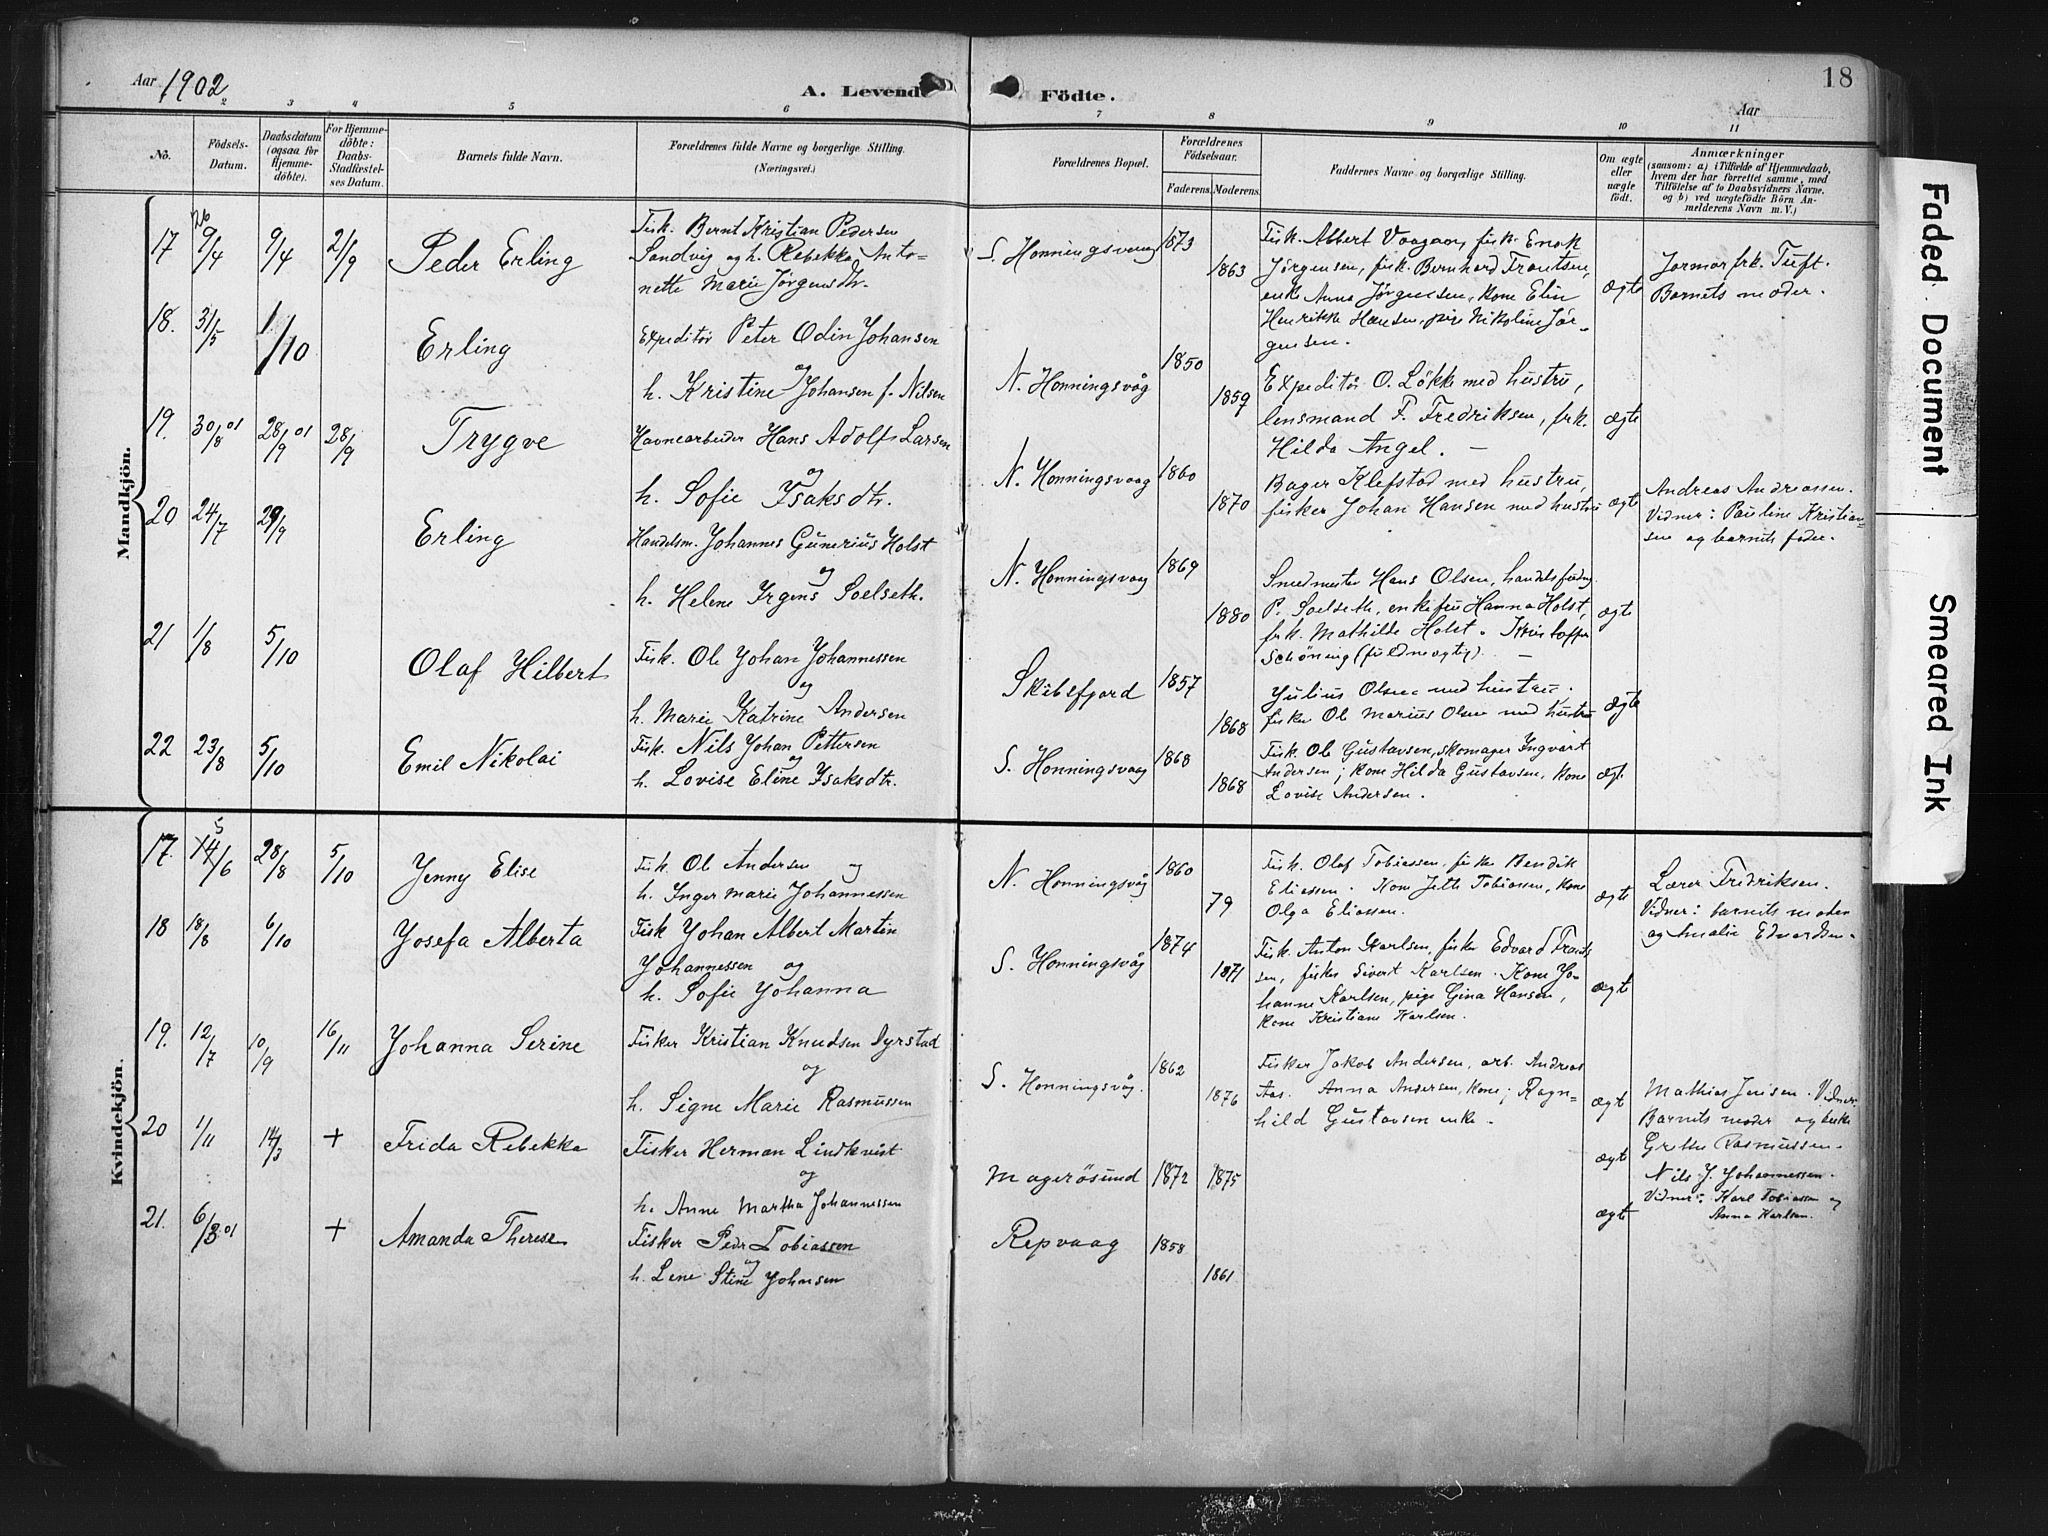 Aar 1902
A. Levende
Födte.
Aar
18
2 3 4 5 6 7 8 9 10 11
No.
Födsels-
Datum.
Daabsdatum
(ogsaa for
Hjemme-
döbte).
For Hjemme-
döbte:
Daabs-
Stadfæstel-
ses Datum.
Barnets fulde Navn.
Forældrenes fulde Navne og borgerlige Stilling.
(Næringsvei.)
Forældrenes Bopæl.
Forældrenes
Födselsaar.
Faderens. Moderens.
Faddernes Navne og borgerlige Stilling.
Om ægte
eller
uægte
födt.
Anmærkninger
(saasom: a) i Tilfælde af Hjemmedaab,
hvem der har forrettet samme, med
Tilföielse af to Daabsvidners Navne,
og b) ved uægtefödte Börn An-
melderens Navn m. V.)
Mandkjön.
17 9/4 9/4 21/9 Peder Erling
Fisk. Bernt Kristian Pedersen
Sandvig og h. Rebekka Anto-
nette Marie Jörgensdtr.
S. Honningsvaag 1873 1863
Fisk. Albert Vaagan, fisk. Enok
Jørgensen, fisk. Bernhard Frantsen,
enke Anna Jørgensen, kone Elin
Henrikke Hansen, pige Nikoline Jør-
gensen.
ægte
Jormorfrk. Tuft.
Barnets moder.
18. 31/5 1/10 Erling
Expeditör Peter Odin Johansen
og
h. Kristine Johansen f. Nilsen
N. Honningsvåg 1850 1859
Expeditör O. Lökke med hustru,
lensmand F. Fredriksen, frk.
Hilda Angel. –
ægte
19. 30/8 01 28/9 01 28/9 Trygve
Havnearbeider Hans Adolf Larsen
og
h. Sofie Isaksdtr.
N. Honningsvaag 1860 1870
Bager Klefstad med hustru,
fisker Johan Hansen med hustru
ægte
Andreas Andreassen.
Vidner: Pauline Kristian-
sen og barnets fader.
20 24/7 29/9 Erling
Handelsm. Johannes Gunerius Holst
og
h. Helene Irgens Soelseth.
N. Honningsvaag 1869 1880
Smedmester Hans Olsen, handelsfuldm.
P. Soelseth, enkefru Hanna Holst,
frk. Mathilde Holst. Kristoffer
Schöning (fuldmægtig). –
ægte
21 1/8 5/10 Olaf Hilbert
Fisk. Ole Johan Johannessen
og
h. Marie Katrine Andersen
Skibsfjord 1857 1868
Julius Olsen med hustru.
fisker Ole Marius Olsen med hustru
ægte
22 23/8 5/10 Emil Nikolai
Fisk. Nils Johan Pettersen
og
h. Lovise Eline Isaksdtr.
S. Honningsvaag 1868 1868
Fisk. Ole Gustavsen, skomager Ingvart
Andersen; kone Hilda Gustavsen, kone
Lovise Andersen.
ægt.
Kvindekjön.
17. 14/6 28/8 5/10 Jenny Elise
Fisk. Ole Andersen og
h. Inger Marie Johannessen
N. Honningsvåg 1860 79
Fisk. Olaf Tobiassen, fisker Bendik
Eliassen. Kone Jette Tobiassen, kone
Olga Eliassen.
ægte
Lærer Fredriksen.
Vidner: barnets moder
og Amalie Edvardsen.
18 18/8 6/10 Josefa Alberta
Fisk Johan Albert Martin
Johannessen og
h. Sofie Johanna
S. Honningsvåg 1874 1871
Fisk. Anton Karlsen, fisker Edvard Frants
sen, fisker Sivert Karlsen. Kone Jo-
hanne Karlsen, pige Gina Hansen,
kone Kristiane Karlsen.
ægte
19. 12/7 10/9 16/11 Johanna Serine
Fisker Kristian Knudsen Dyrstad
og
h. Signe Marie Rasmussen
S. Honningsvåg. 1862 1876
Fisker Jakob Andersen, arb. Andreas
Aas. Anna Andersen, kone; Ragn-
hild Gustavsen enke.
ægte
Mathias Jensen. Vidner:
Barnets moder og enke
Grethe Rasmussen.
20 1/11 14/3 + Frida Rebekka
Fisker Herman Lindkvist
og
h. Anne Martha Johannessen
Magerösund 1872 1875
ægte
Nils J. Johannessen.
Vidner: Karl Tobiassen og
Anna Karlsen.
21. 6/3 01 + Amanda Therese
Fisker Peder Tobiassen
og
h. Lene Stine Johnsen
Repvaag 1858 1861
ægte
Faded Document
Smeared Ink